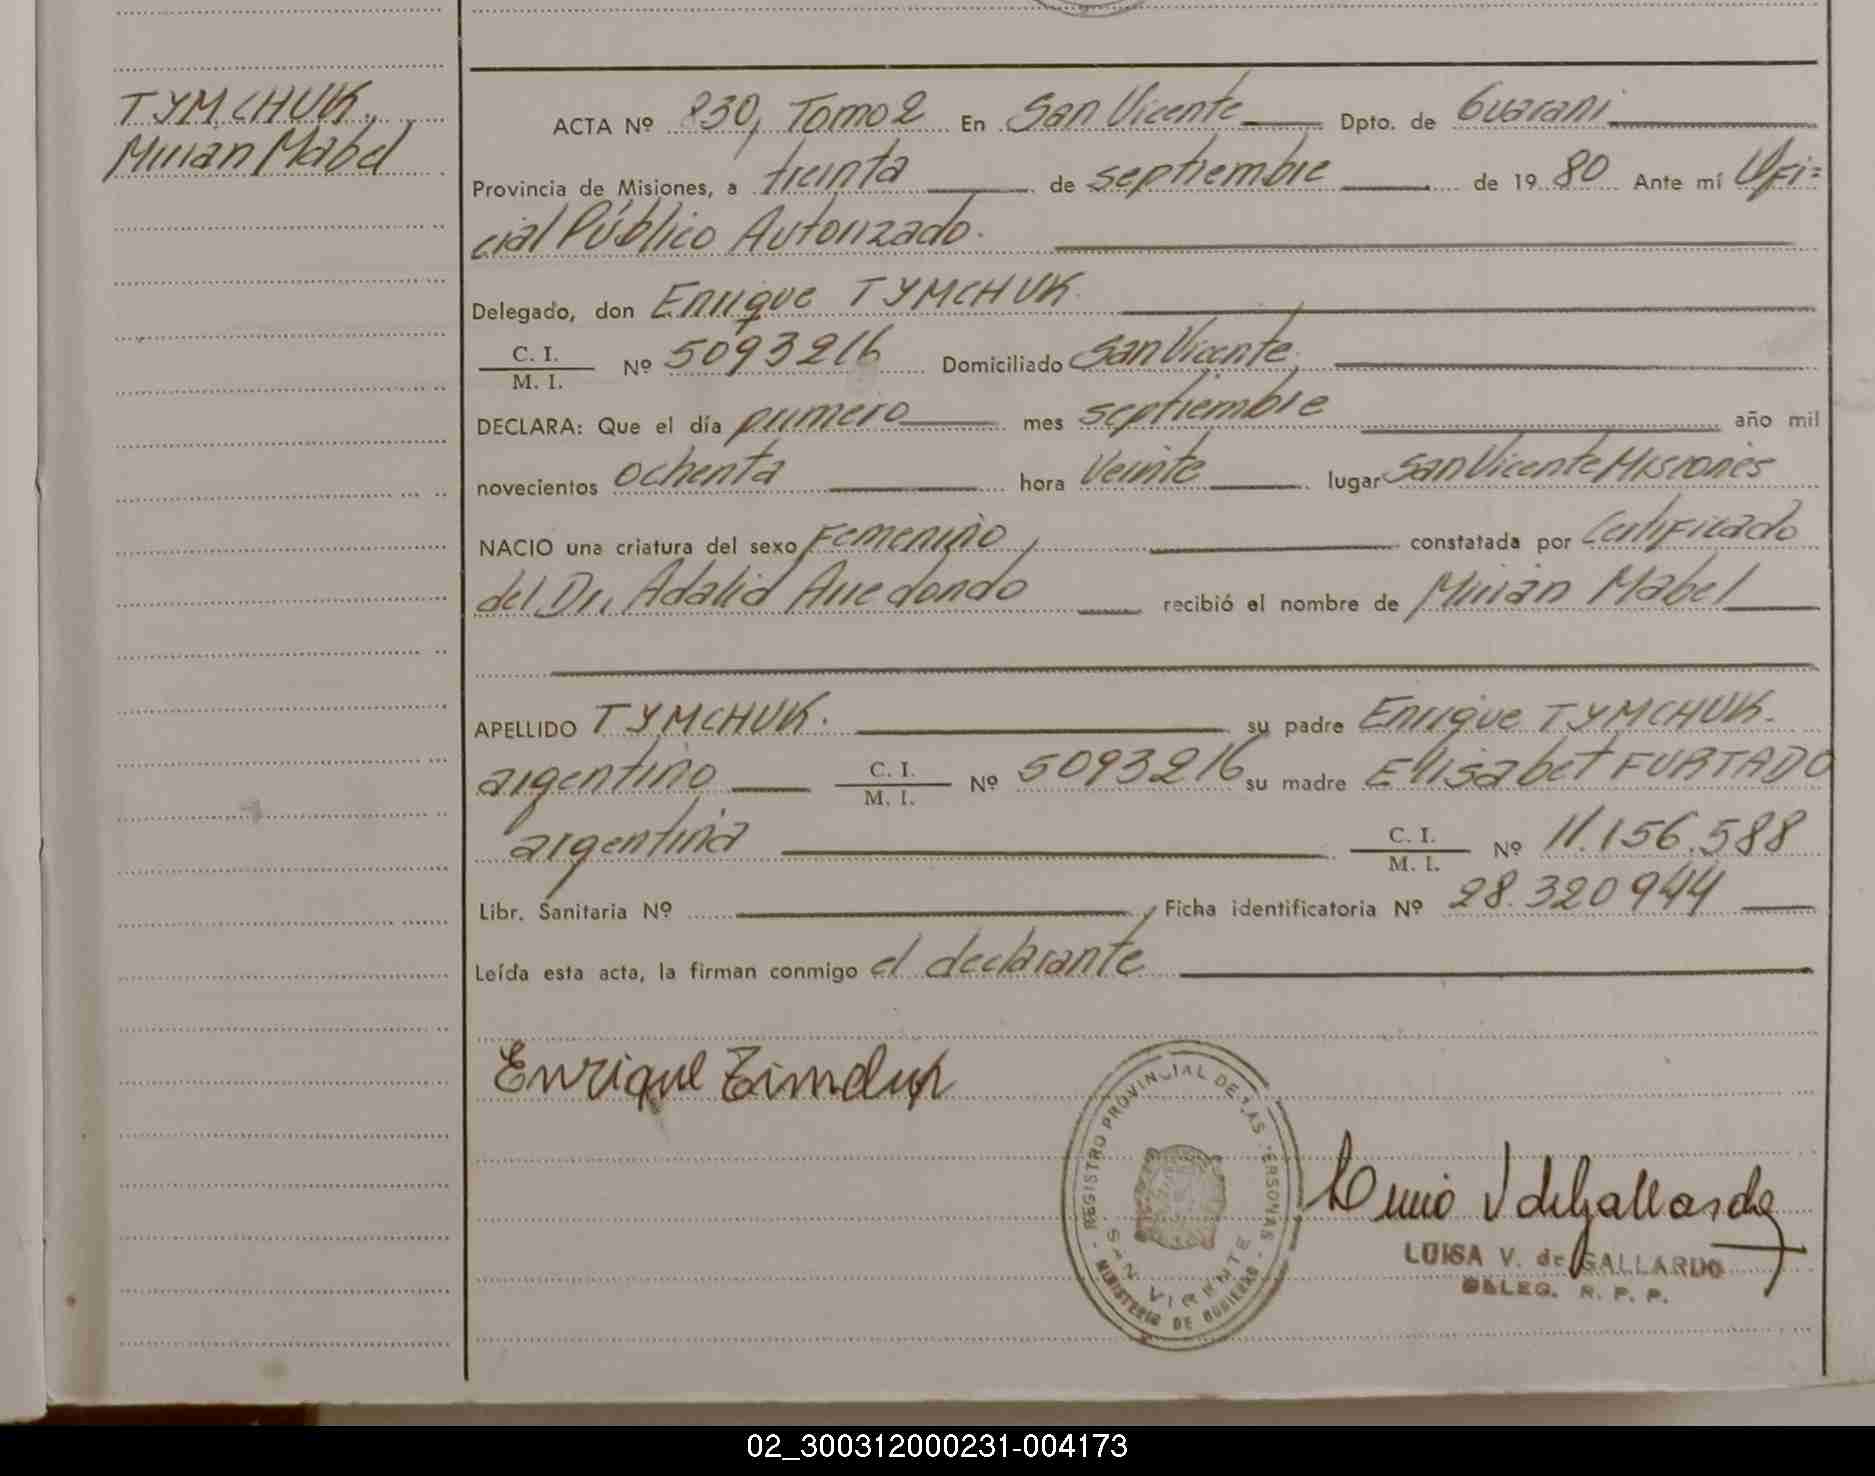 TYMCHUK,
Mirian Mabel
ACTA Nº 830, Tomo 2 En San Vicente Dpto. de Guarani
Provincia de Misiones, a treinta de septiembre de 1980 Ante mí Ofi=
cial Público Autorizado.
Delegado, don Enrique TYMCHUK.
C. I.
M. I.
Nº 5093216 Domiciliado San Vicente.
DECLARA: Que el día primero mes septiembre año mil
novecientos ochenta hora Veinte lugar San Vicente Misiones
NACIO una criatura del sexo Femenino, constatada por Certificado
del Dr. Adalid Arredondo recibió el nombre de Mirian Mabel
APELLIDO TYMCHUK. su padre Enrique TYMCHUK.
argentino C. I. Nº 5093216 su madre Elisabet FURTADO
M. I.
argentina C. I. Nº 11.156.588
M. I.
Libr. Sanitaria Nº Ficha identificatoria Nº 28.320944
Leída esta acta, la firman conmigo el declarante
Enrique
REGISTRO PROVINCIAL DE LAS PERSONAS
SAN VICENTE
MINISTERIO DE GOBIERNO
V de Gallardo
LUISA V. de GALLARDO
DELEG. R. P. P.
02_300312000231-004173